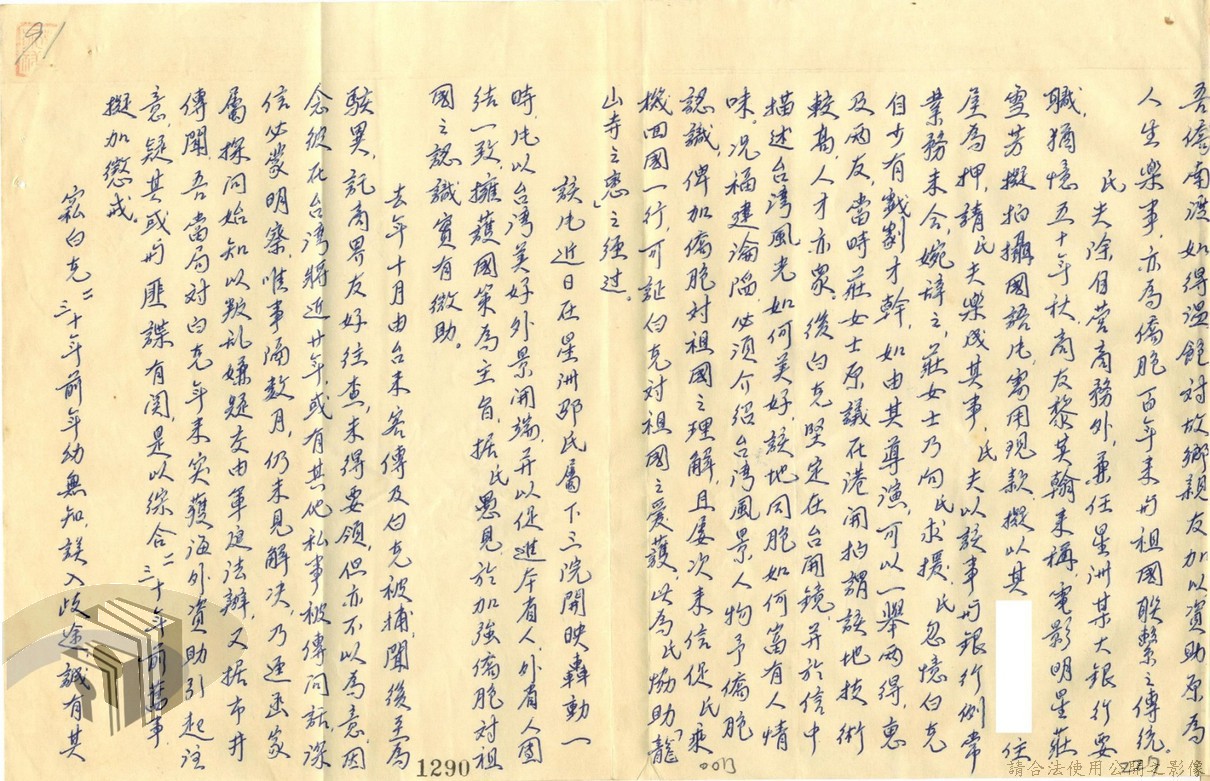 吾僑南渡如得溫飽對故鄉親友加以資助原為
人生樂事,亦為僑胞百年來与祖國联繫之傳統。
民夫除自营商務外,兼任星洲某大银行要
職,猶憶五十年秋,商友黎其翰来稱,電影明星莊
雪芳擬拍攝國語片,需用現款擬以其 住
屋為押,請民夫樂成其事,民夫以該事与銀行例常
業務未合,婉辞之,莊女士乃向民求援,民忽憶白克
自少有戲劇才幹,如由其導演,可以一舉兩得,惠
及兩友,當時莊女士原議在港開拍謂該地技術
較高,人才亦眾,後白克堅定在台開鏡,并於信中
描述台湾風光如何美好,該地同胞如何富有人情
味,况福建淪陷,必須介紹台湾風景人物予僑胞
認識,俾加僑胞對祖國之理解,且屡次来信促民乘
機回國一行,可証白克對祖國之爱護,此為民协助「龍
山寺之恋」之經过。
該片近日在星洲邵氏屬下三院開映轟動一
時,片以台湾美好外景開端,并以促進本省人,外省人團
结一致,擁護國策為主旨,据民愚見於加強僑胞对祖
國之認識實有微助。
去年十月由台来客傳及白克被捕,聞後至為
駭異,託商界友好往查,未得要領,但亦不以為意,因
念彼在台湾將近廿年,或有其他私事被傳問話,深
信必蒙明察,唯事隔数月,仍未見解决,乃逕函家
屬探问始知以叛乱嫌疑交由軍庭法辦,又据市井
傳聞,吾當局对白克年来突獲海外資助引起注
意,疑其或与匪諜有関,是以綜合二三十年前舊事,
擬加懲戒。
竊白克二三十年前年幼無知,誤入歧途,誠有其
1290
0013
請合法使用公開之影像